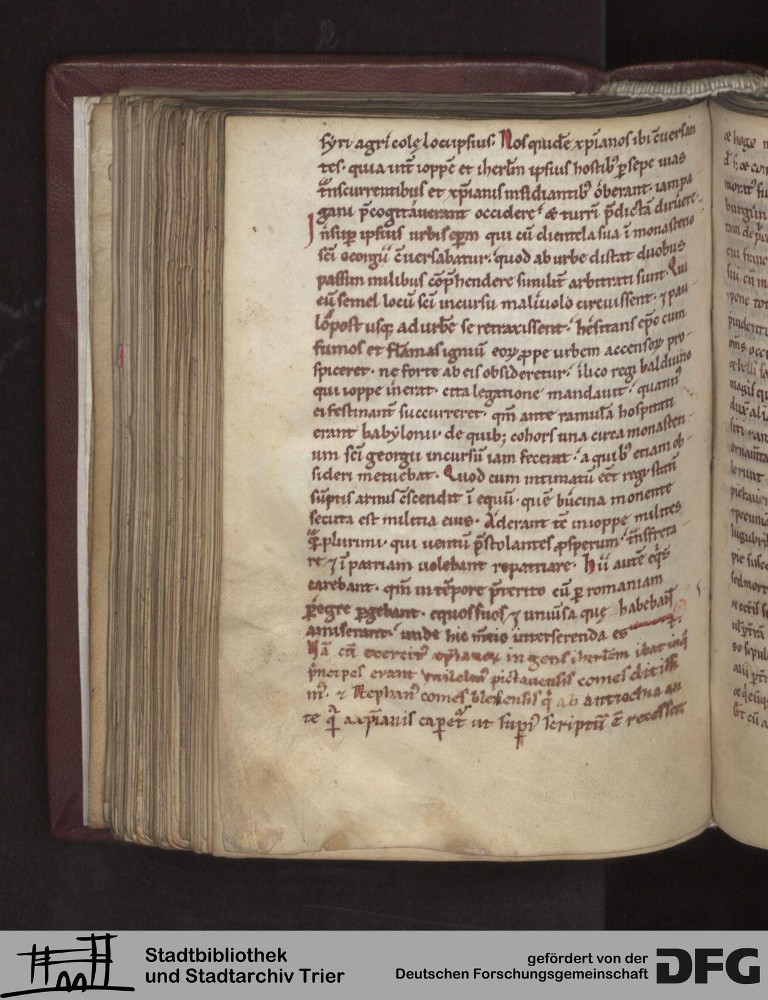 syri agricolę loci ipsius. Nos quidē xp̄ianos ibi c̄uersan
tes. quia int̄ ioppē et ihr̄lm ipsius hostib; p̱ sepe uias
t̄nscurrentibus et xp̄ianis insidiantib; oberant. iam pa
gani p̄cogitauerant occidere. & turri p̄dictā diruere.
Insup ipsius urbis ep̄m qui cū clientela sua ī monasterio
sc̄i georgii c̄uersabatur. quod ab urbe distat duobus
passim milibus cōp̄hendere similit̄ arbitrati sunt. Qui
cū semel locū sc̄i incursu maliuolo circuissent. ⁊ pau
lo post usq; ad urbē se retraxissent. hesitans ep̄c cum
fumos et flāmas igniū eoꝝ ꝓpe urbem accensoꝝ pro
spiceret. ne forte ab eis obsideretur. ilico regi balduino
qui ioppe inerat. cita legatione mandauit. quatin᷒
ei festinant̄ succurreret. qm̄ ante ramulā hospitati
erant babylonii. de quib; cohors una circa monasteri
um sc̄i georgii incursū iam fecerat. a quib; etiam ob
sideri metuebat. Quod cum intimatū eēt regi statī
sūptis armis c̄scendit ī equū. quē bucina monente
secuta est militia eius. Aderant tc̄ in ioppe milites
q̄ plurimi. qui uentū p̄stolantes ꝓsperum. t̄nsfreta
re ⁊ ī patriam uolebant repatriare. Hii autē eq̄s
carebant. qm̄ in tēpore p̄terito cū p̱ romaniam
p̱egre p̱gebant. equos suos ⁊ uniūsa quę habebant
amiserant. unde hic m̄tio interserenda es
Nā cū exercit᷒ xp̄ianoꝝ ingens iherl̄em ibat
p̄ncipes erant willelm᷒ pictauensis comes ditissi
m᷒. ⁊ Stephan᷒ comes blesensis q̄ ab antiochia an
te q̄ a xp̄ianis cap̱et᷒ ut supi᷒ scriptū ē recessit
Stadtbibliothek
und Stadtarchiv Trier
gefördert von der
Deutschen Forschungsgemeinschaft
DFG